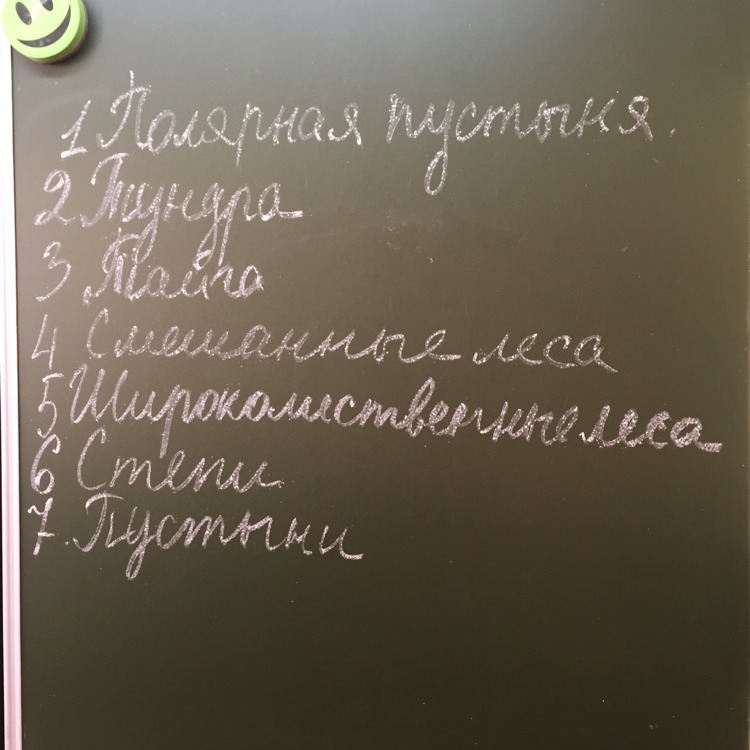 1 Полярная пустыня.
2. Тундра
3 Тайга
4 Смешанные леса
5 Широколиственные леса
6 Степи
7. Пустыни